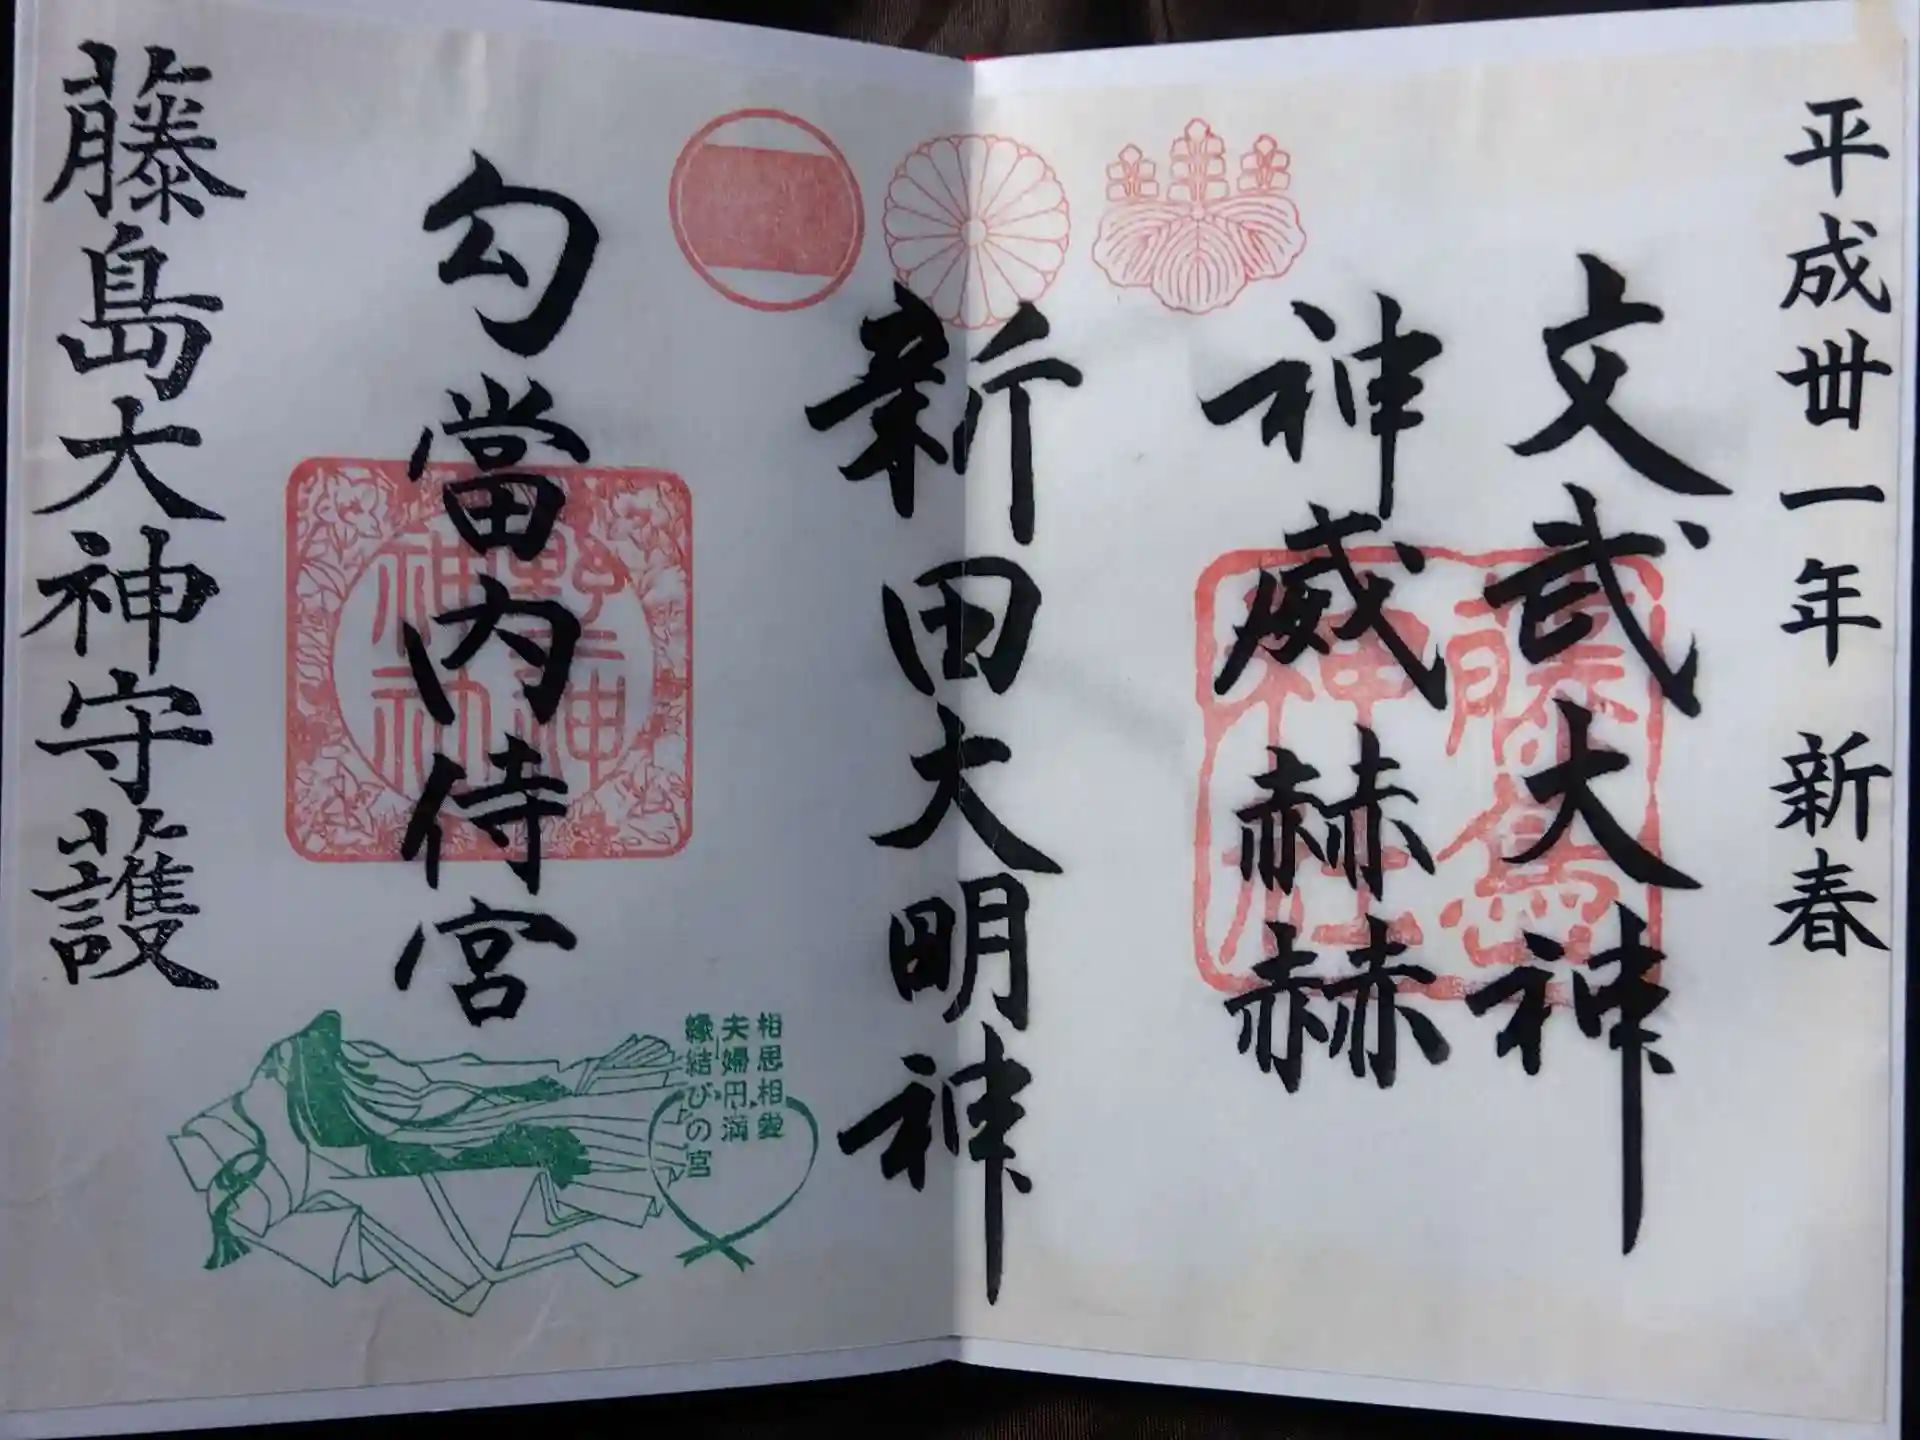 平成丗一年 新春
文武大神
神威赫赫
藤島
神社
新田大明神
相思相愛
夫婦円満
縁結びの宮
勾當内侍宮
野神
神社
藤島大神守護